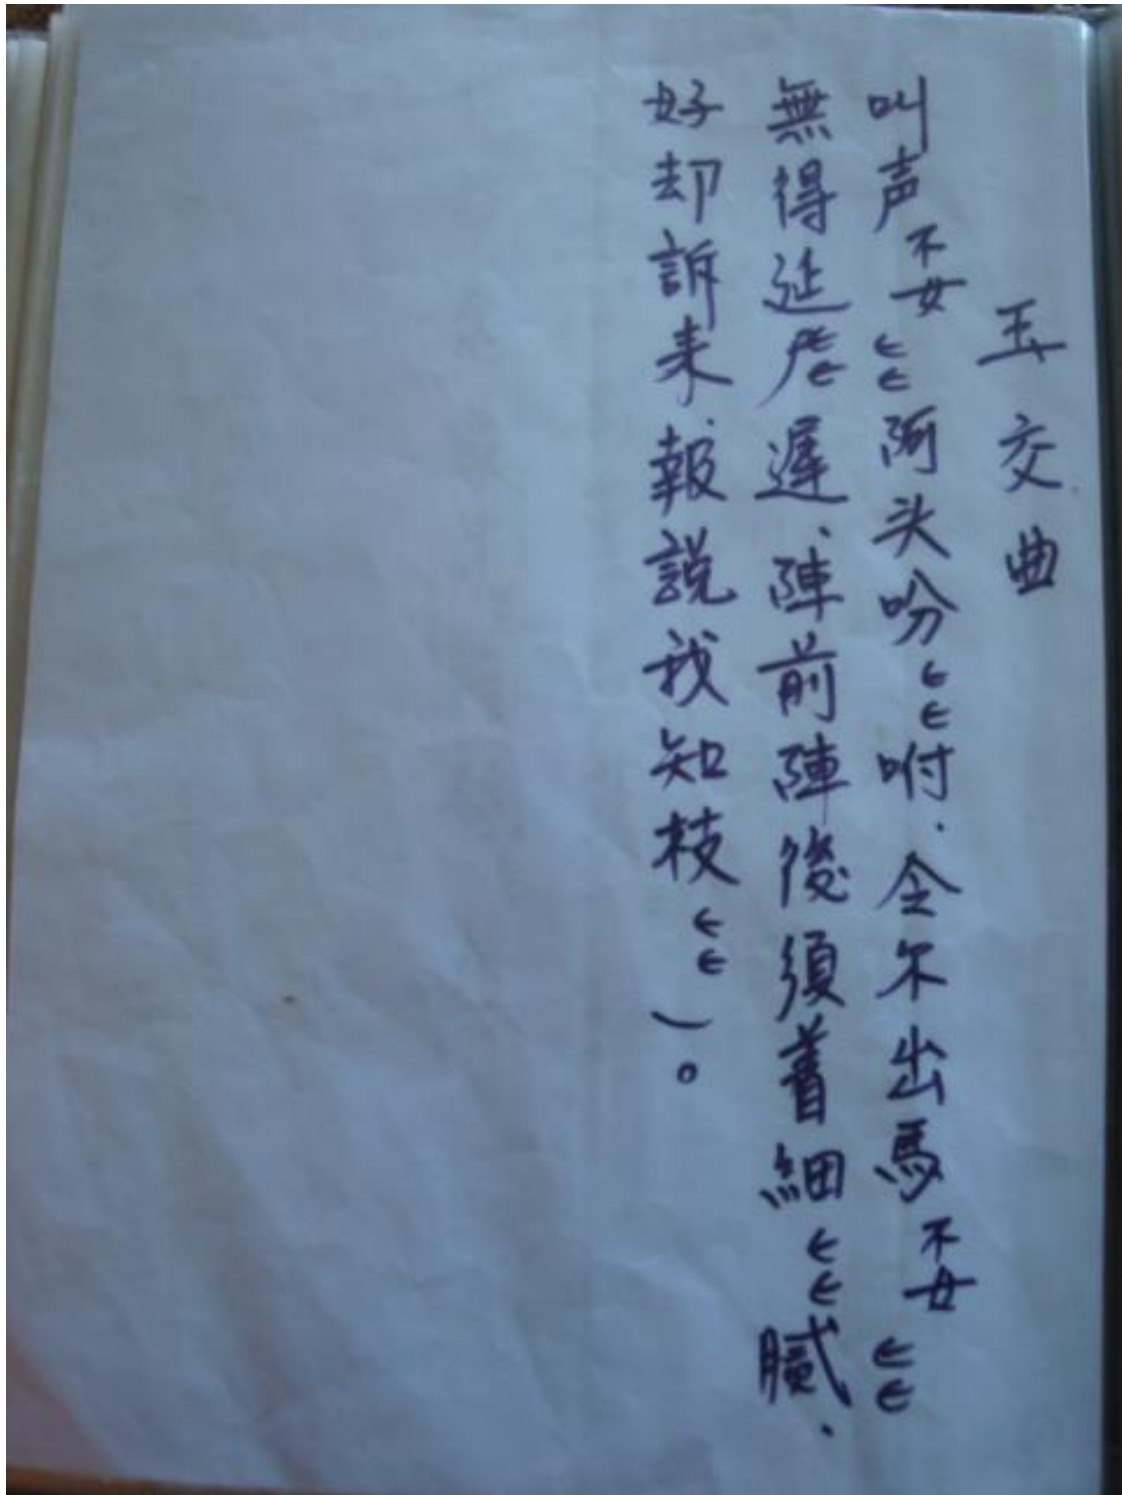 玉交曲
叫声不女㇀㇀阿头吩㇀㇀咐.令尔出馬不女㇀㇀
無得延㇀㇀遲、陣前陣後須着細㇀㇀膩.
好却訴来.報説我知枝㇀㇀)。